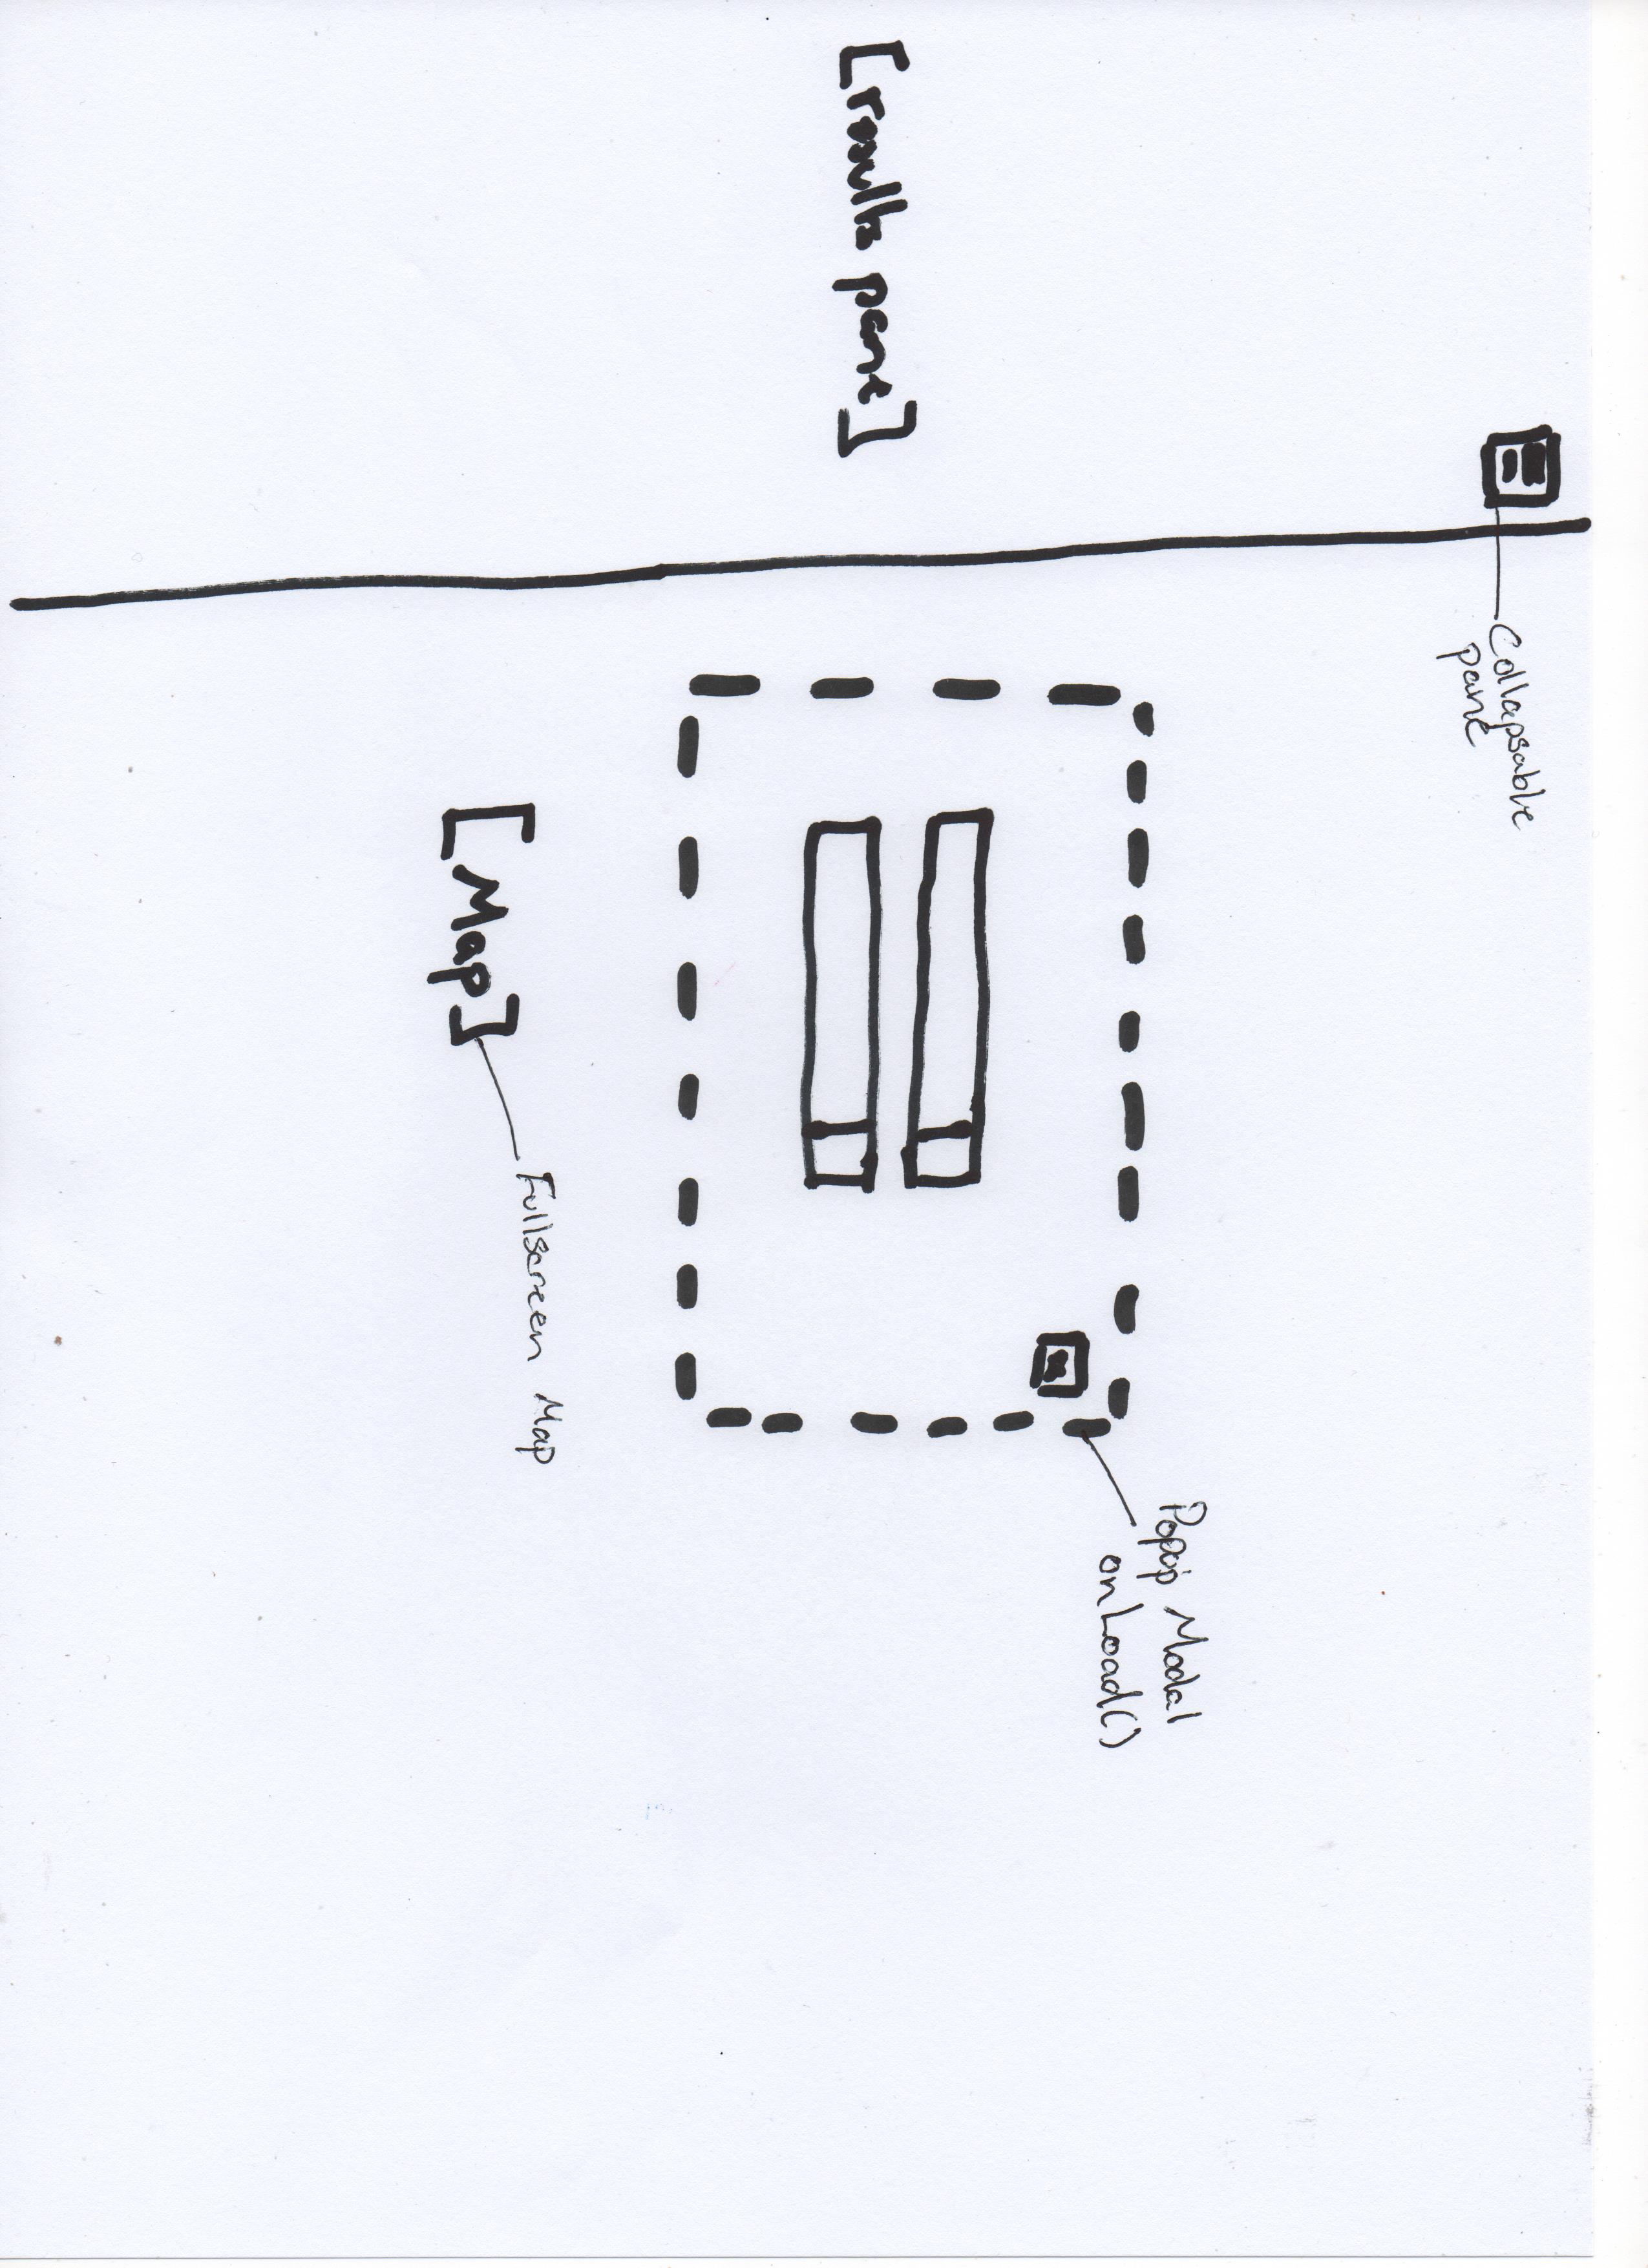 Collapsable
pane
Popup Modal
onLoad()
[results pane]
Fullscreen Map
[Map]